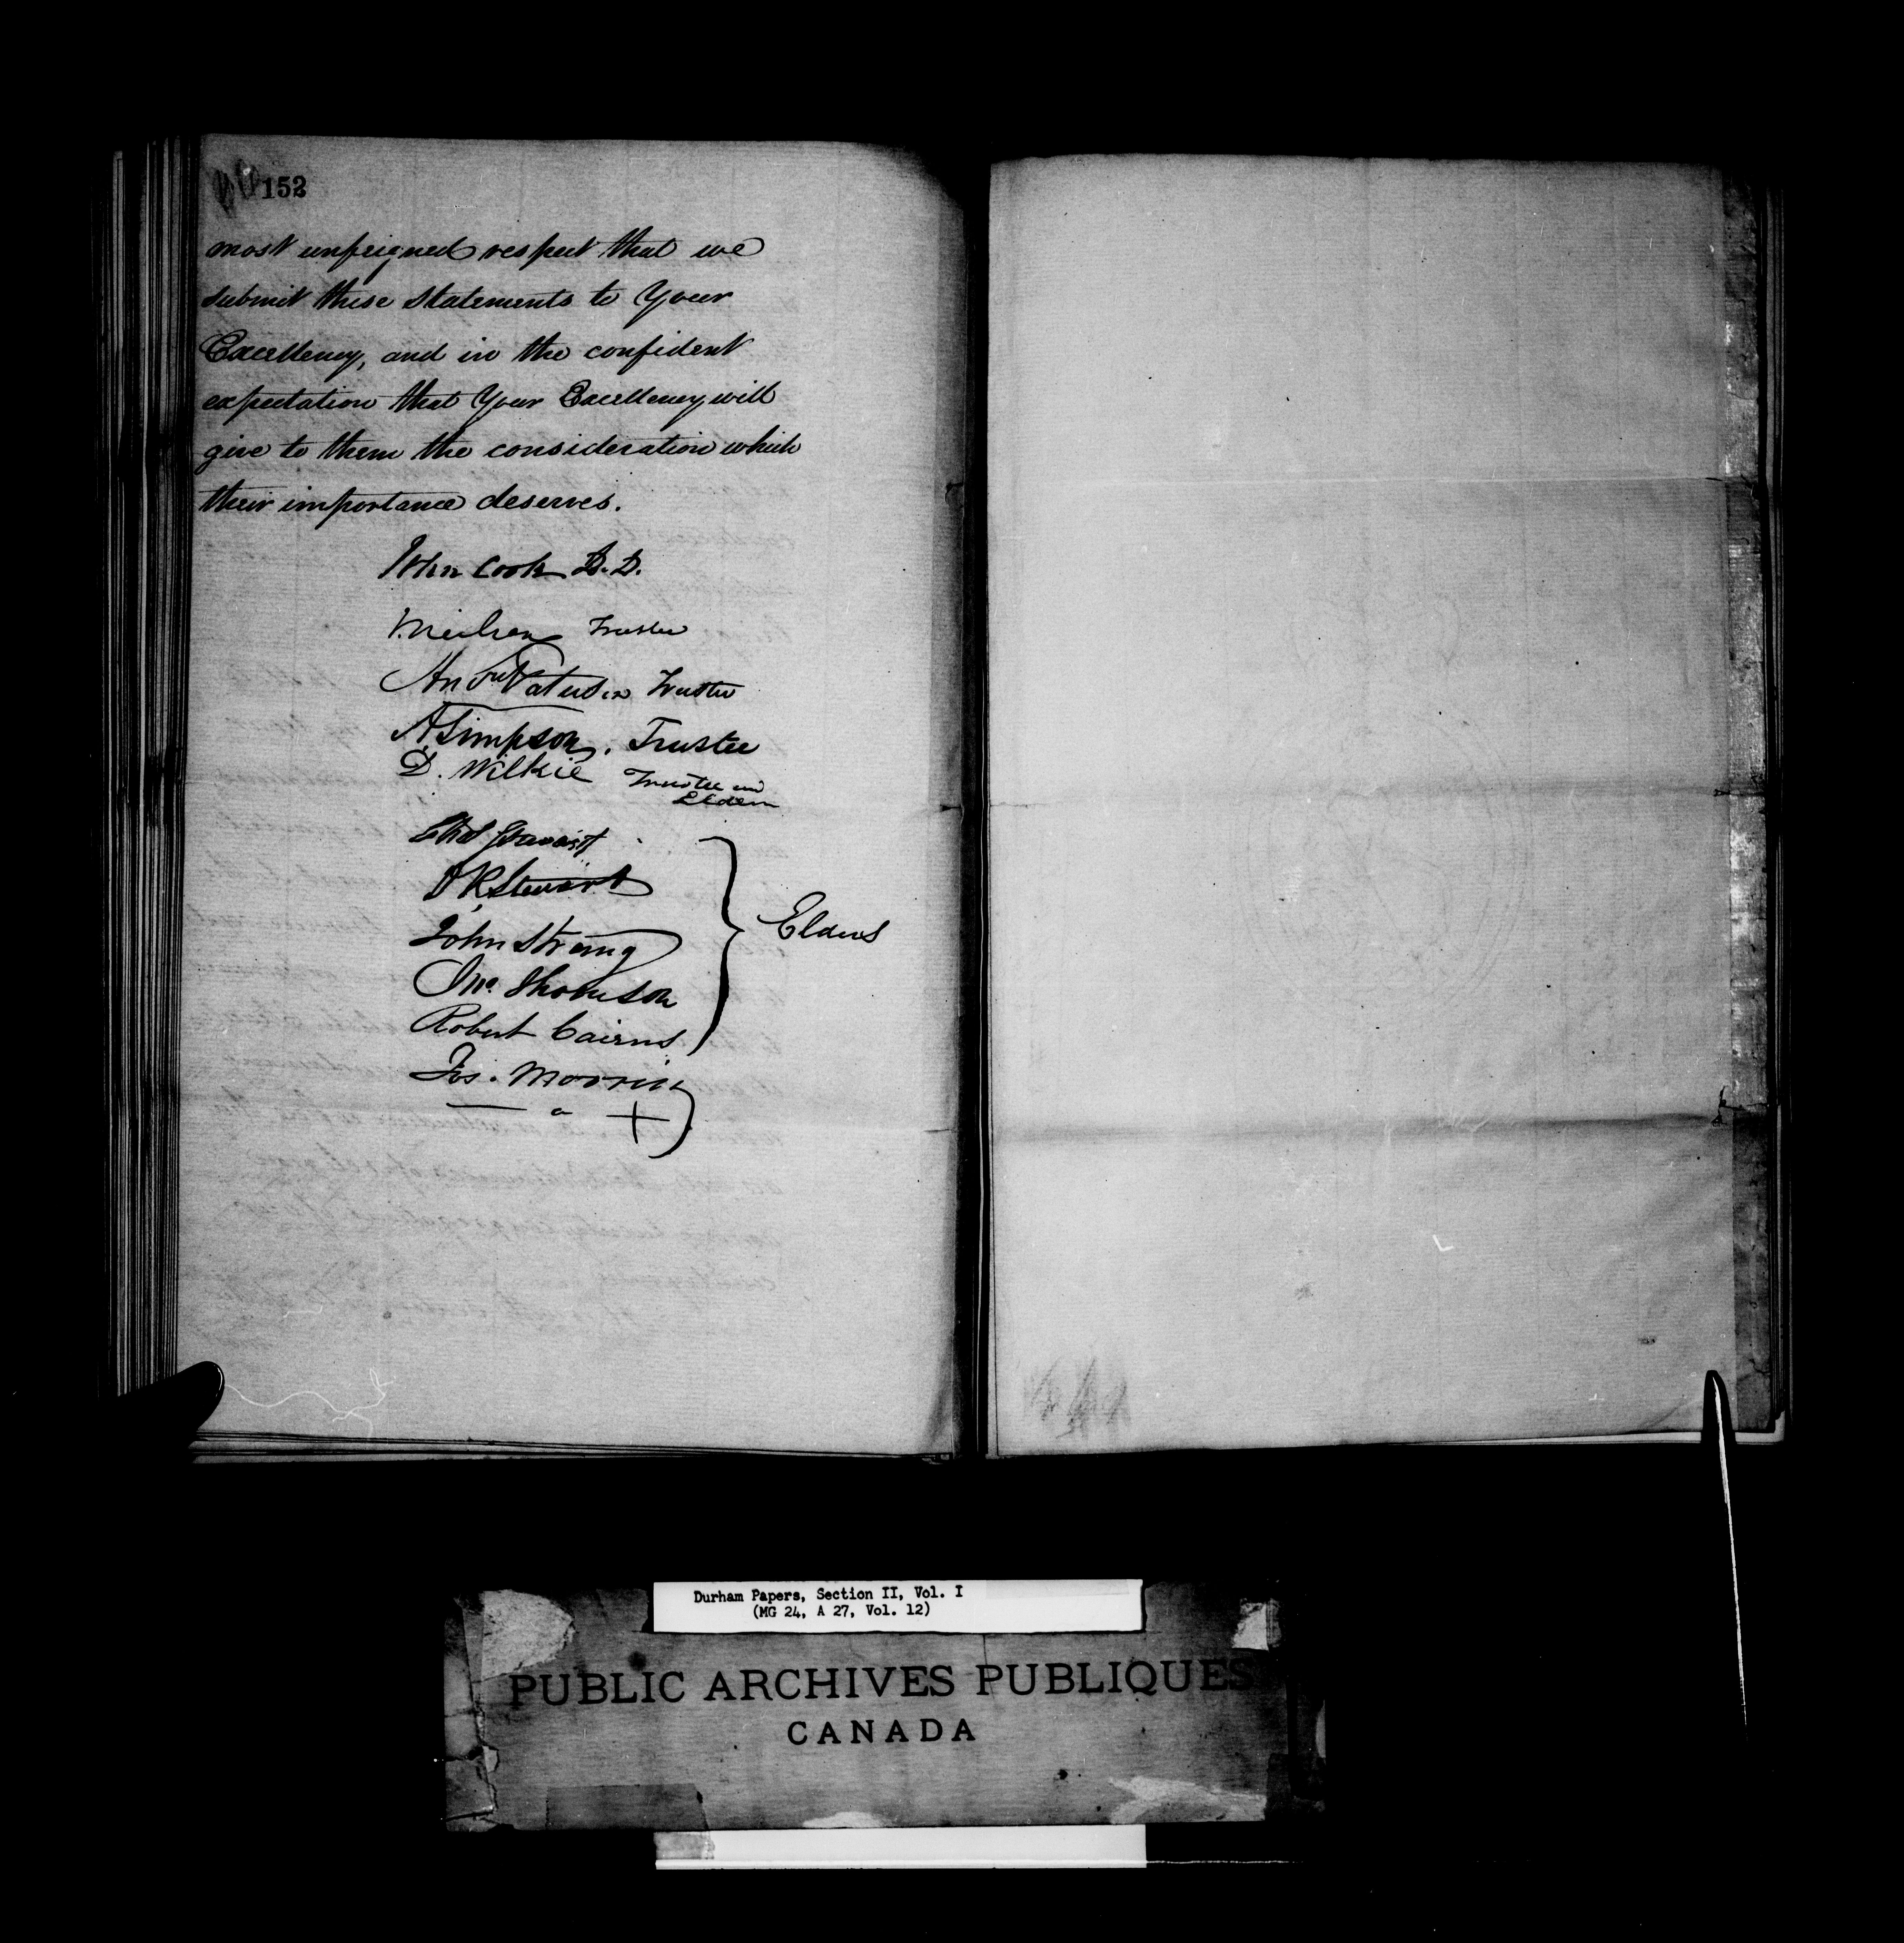 152
most unfeigned respect that we
submit these statements to Your
Excellency, and in the confident
expectation that Your Excellency will
give to them the consideration which
their importance deserves.
John Cook D.D.
J. Neilson Trustee
And.w Paterson Trustee
A. Simpson. Trustee
D. Wilkie Trustee and
Elder
Stewart
John Strang
Jno. Thomson
Robert Cairns
Elders
Jos. Morrin
Durham Papers, Section II, Vol. I
(MG 24, A 27, Vol. 12)
PUBLIC ARCHIVES PUBLIQUES
CANADA